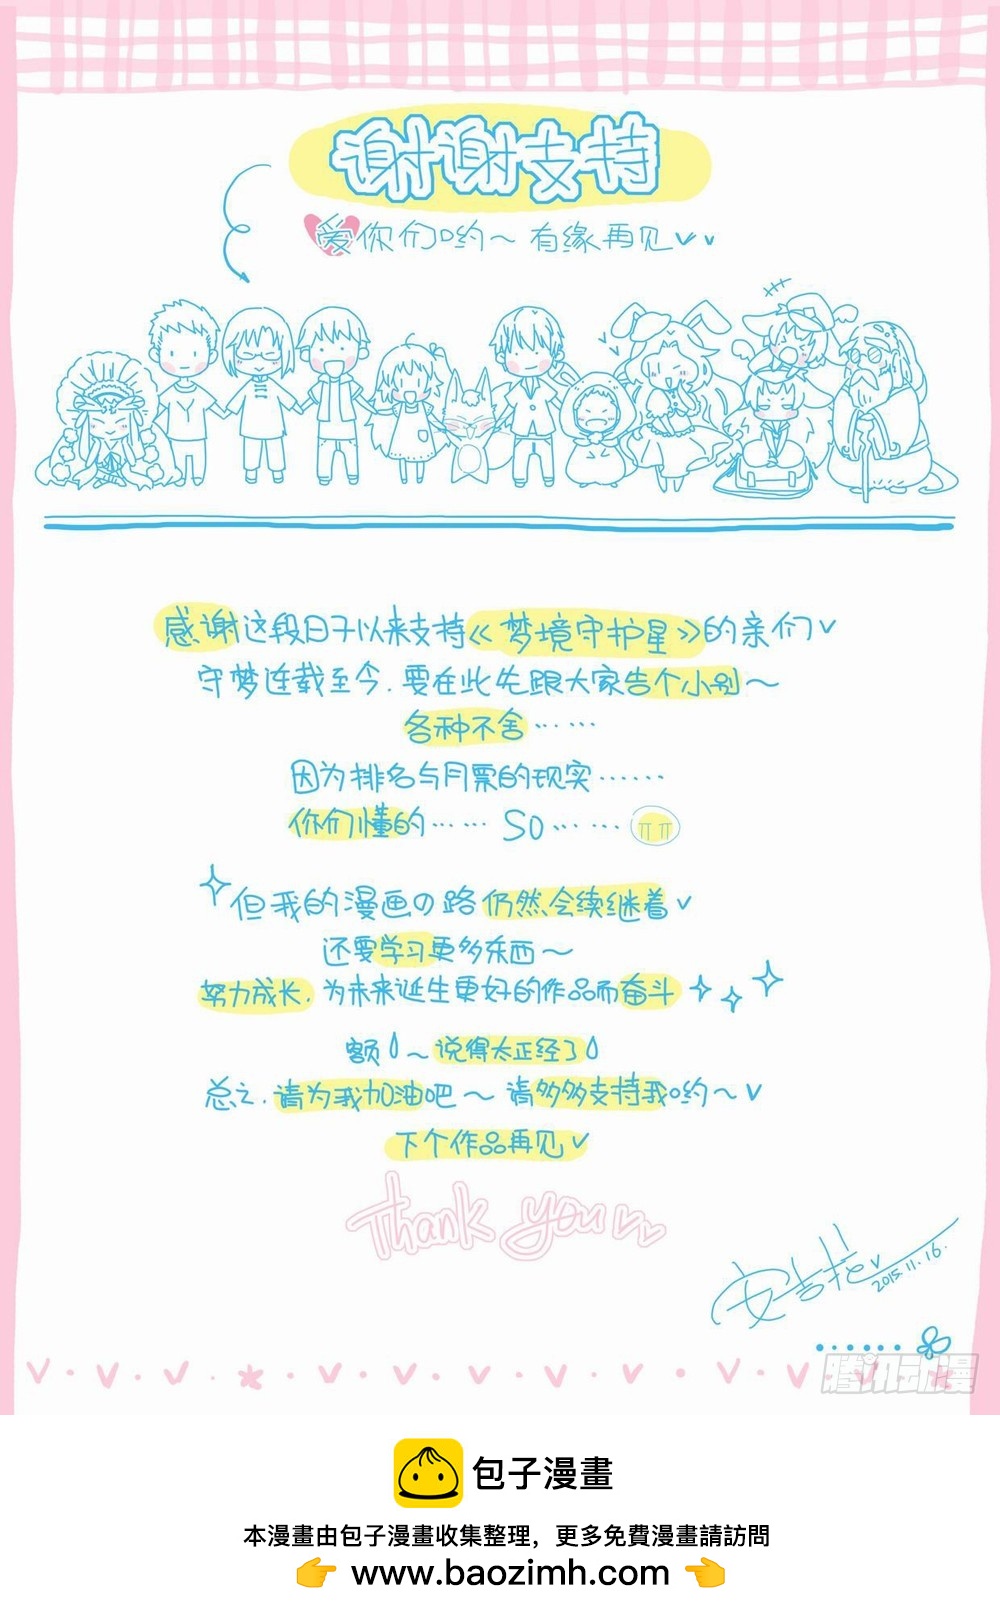 谢谢支持
爱你们哟～有缘再见
感谢这段日子以来支持《梦境守护星》的亲们
守梦连载至今.要在此先跟大家告个小别～
各种不舍……
因为排名与月票的现实……
你们懂的…… SO…… ㅠㅠ
但我的漫画の路仍然会续继着
还要学习更多东西～
努力成长.为未来诞生更好的作品而奋斗
额～说得太正经了
总之.请为我加油吧～请多多支持我哟～
下个作品再见
Thank you
2015.11.16.
腾讯动漫
包子漫畫
本漫畫由包子漫畫收集整理，更多免費漫畫請訪問
👉 www.baozimh.com 👈